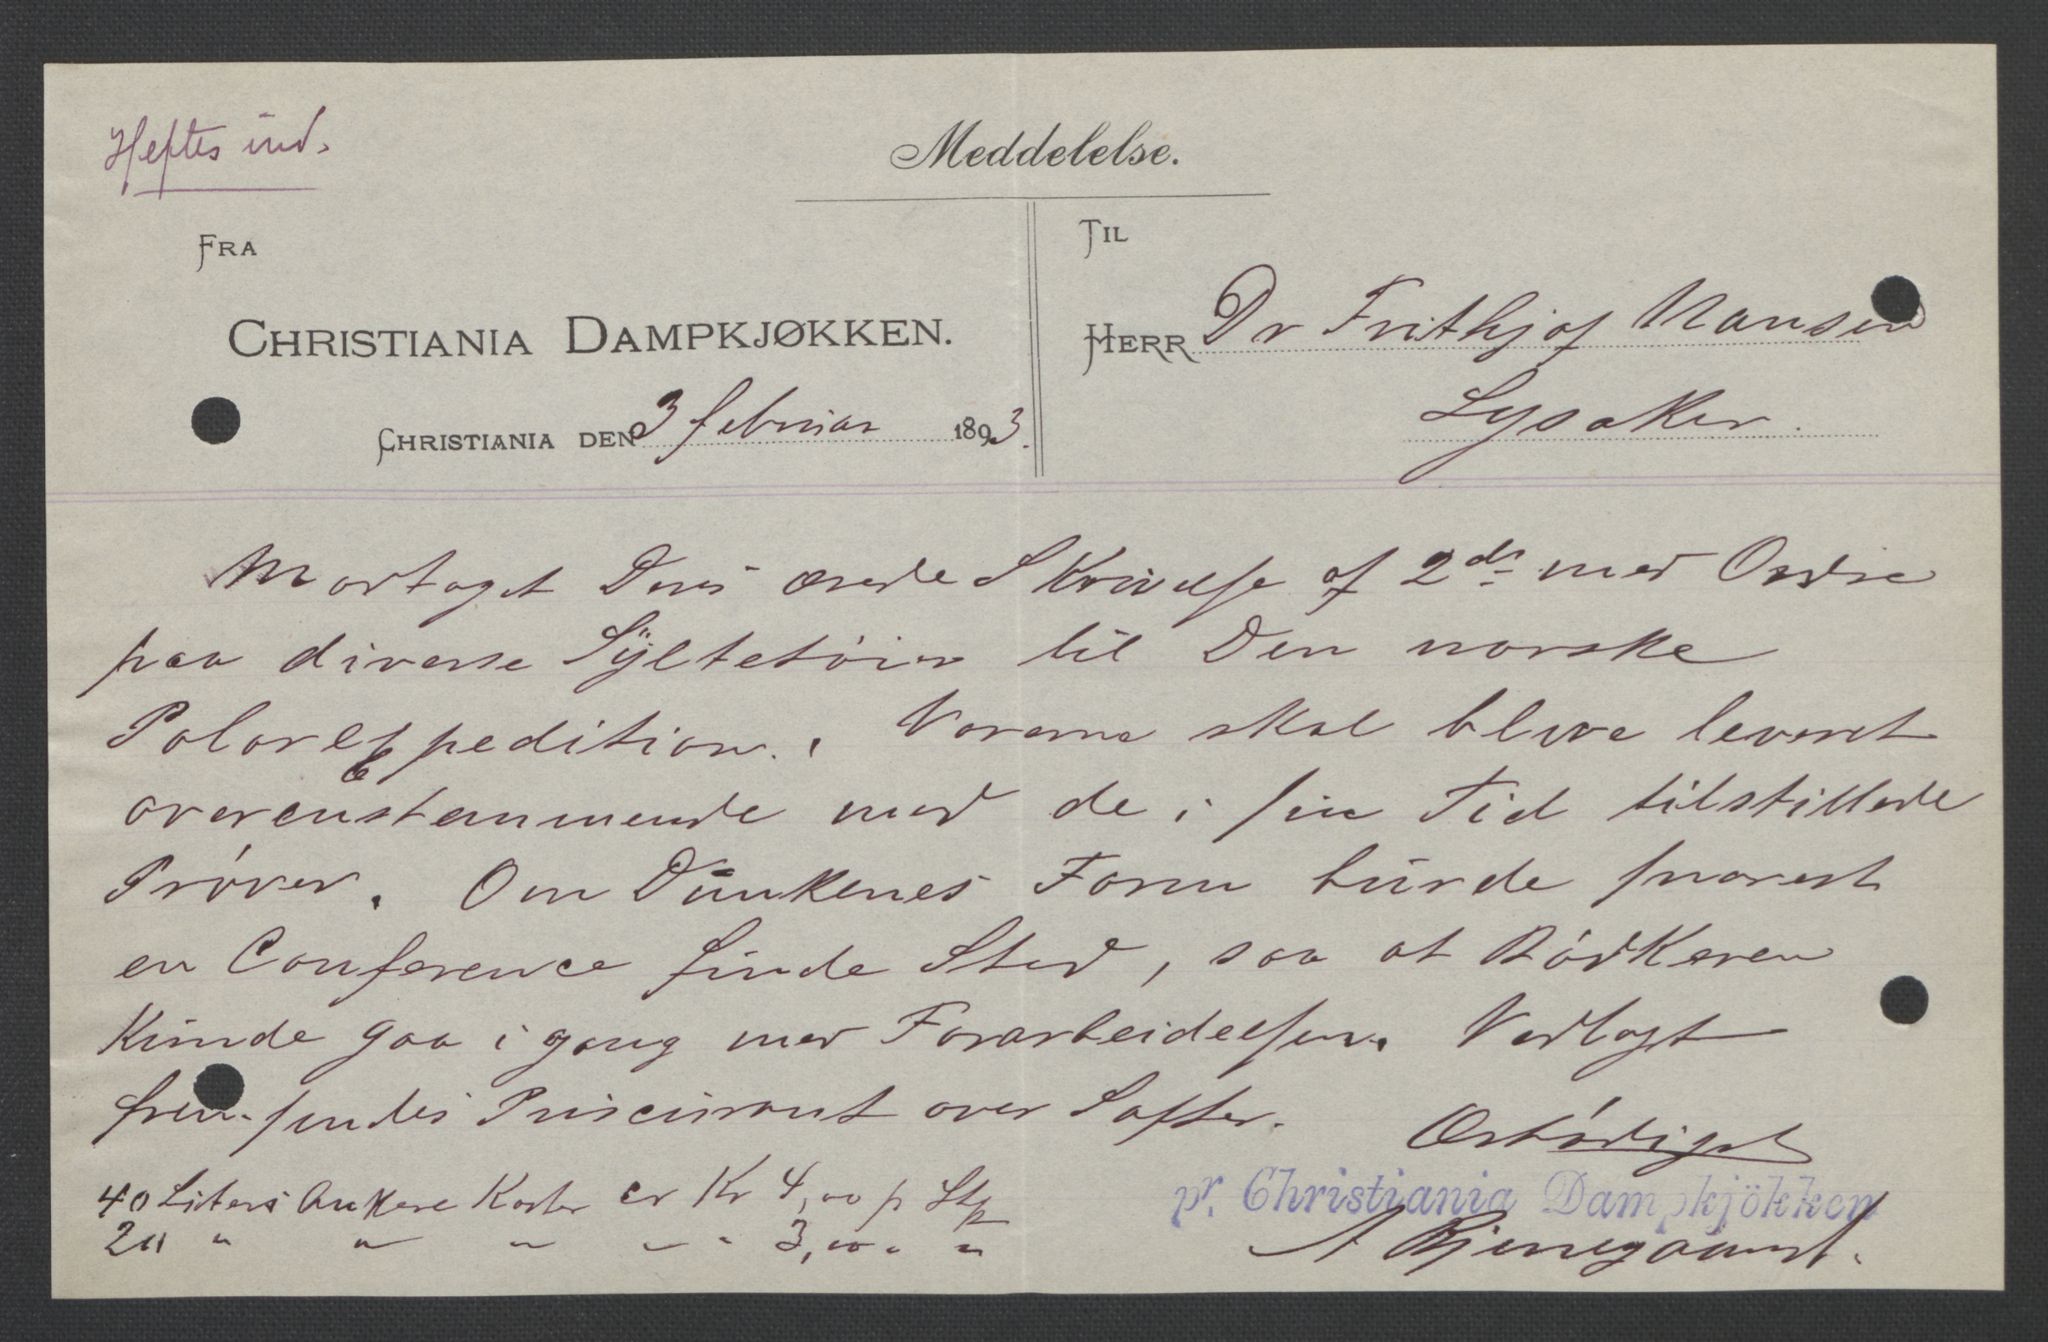 Heftes ind.
Meddelelse.
FRA
CHRISTIANIA DAMPKJØKKEN.
CHRISTIANIA DEN 3 februar 1893.
TIL
HERR Dr Frithjof Nansen
Lysaker.
Modtaget Deres ærede Skrivelse af 2den med Ordre
paa diverse Syltetøier til Den norske
Polarexpedition. Varerne skal blive leveret
overenstemmende med de i sin Tid tilstillede
Prøver. Om Dunkenes Form burde snarest
en Conference finde Sted, saa at Bødkeren
kunde gaa i gang med Forarbeidelsen. Vedlagt
fremsendes Priscourant over Safter.
Ærbødigst
40 Liters Ankere Koster er Kr 4,00 p Stk
20 " " " " " 3,00 " "
pr. Christiania Dampkjökken
A Bjerregaard.